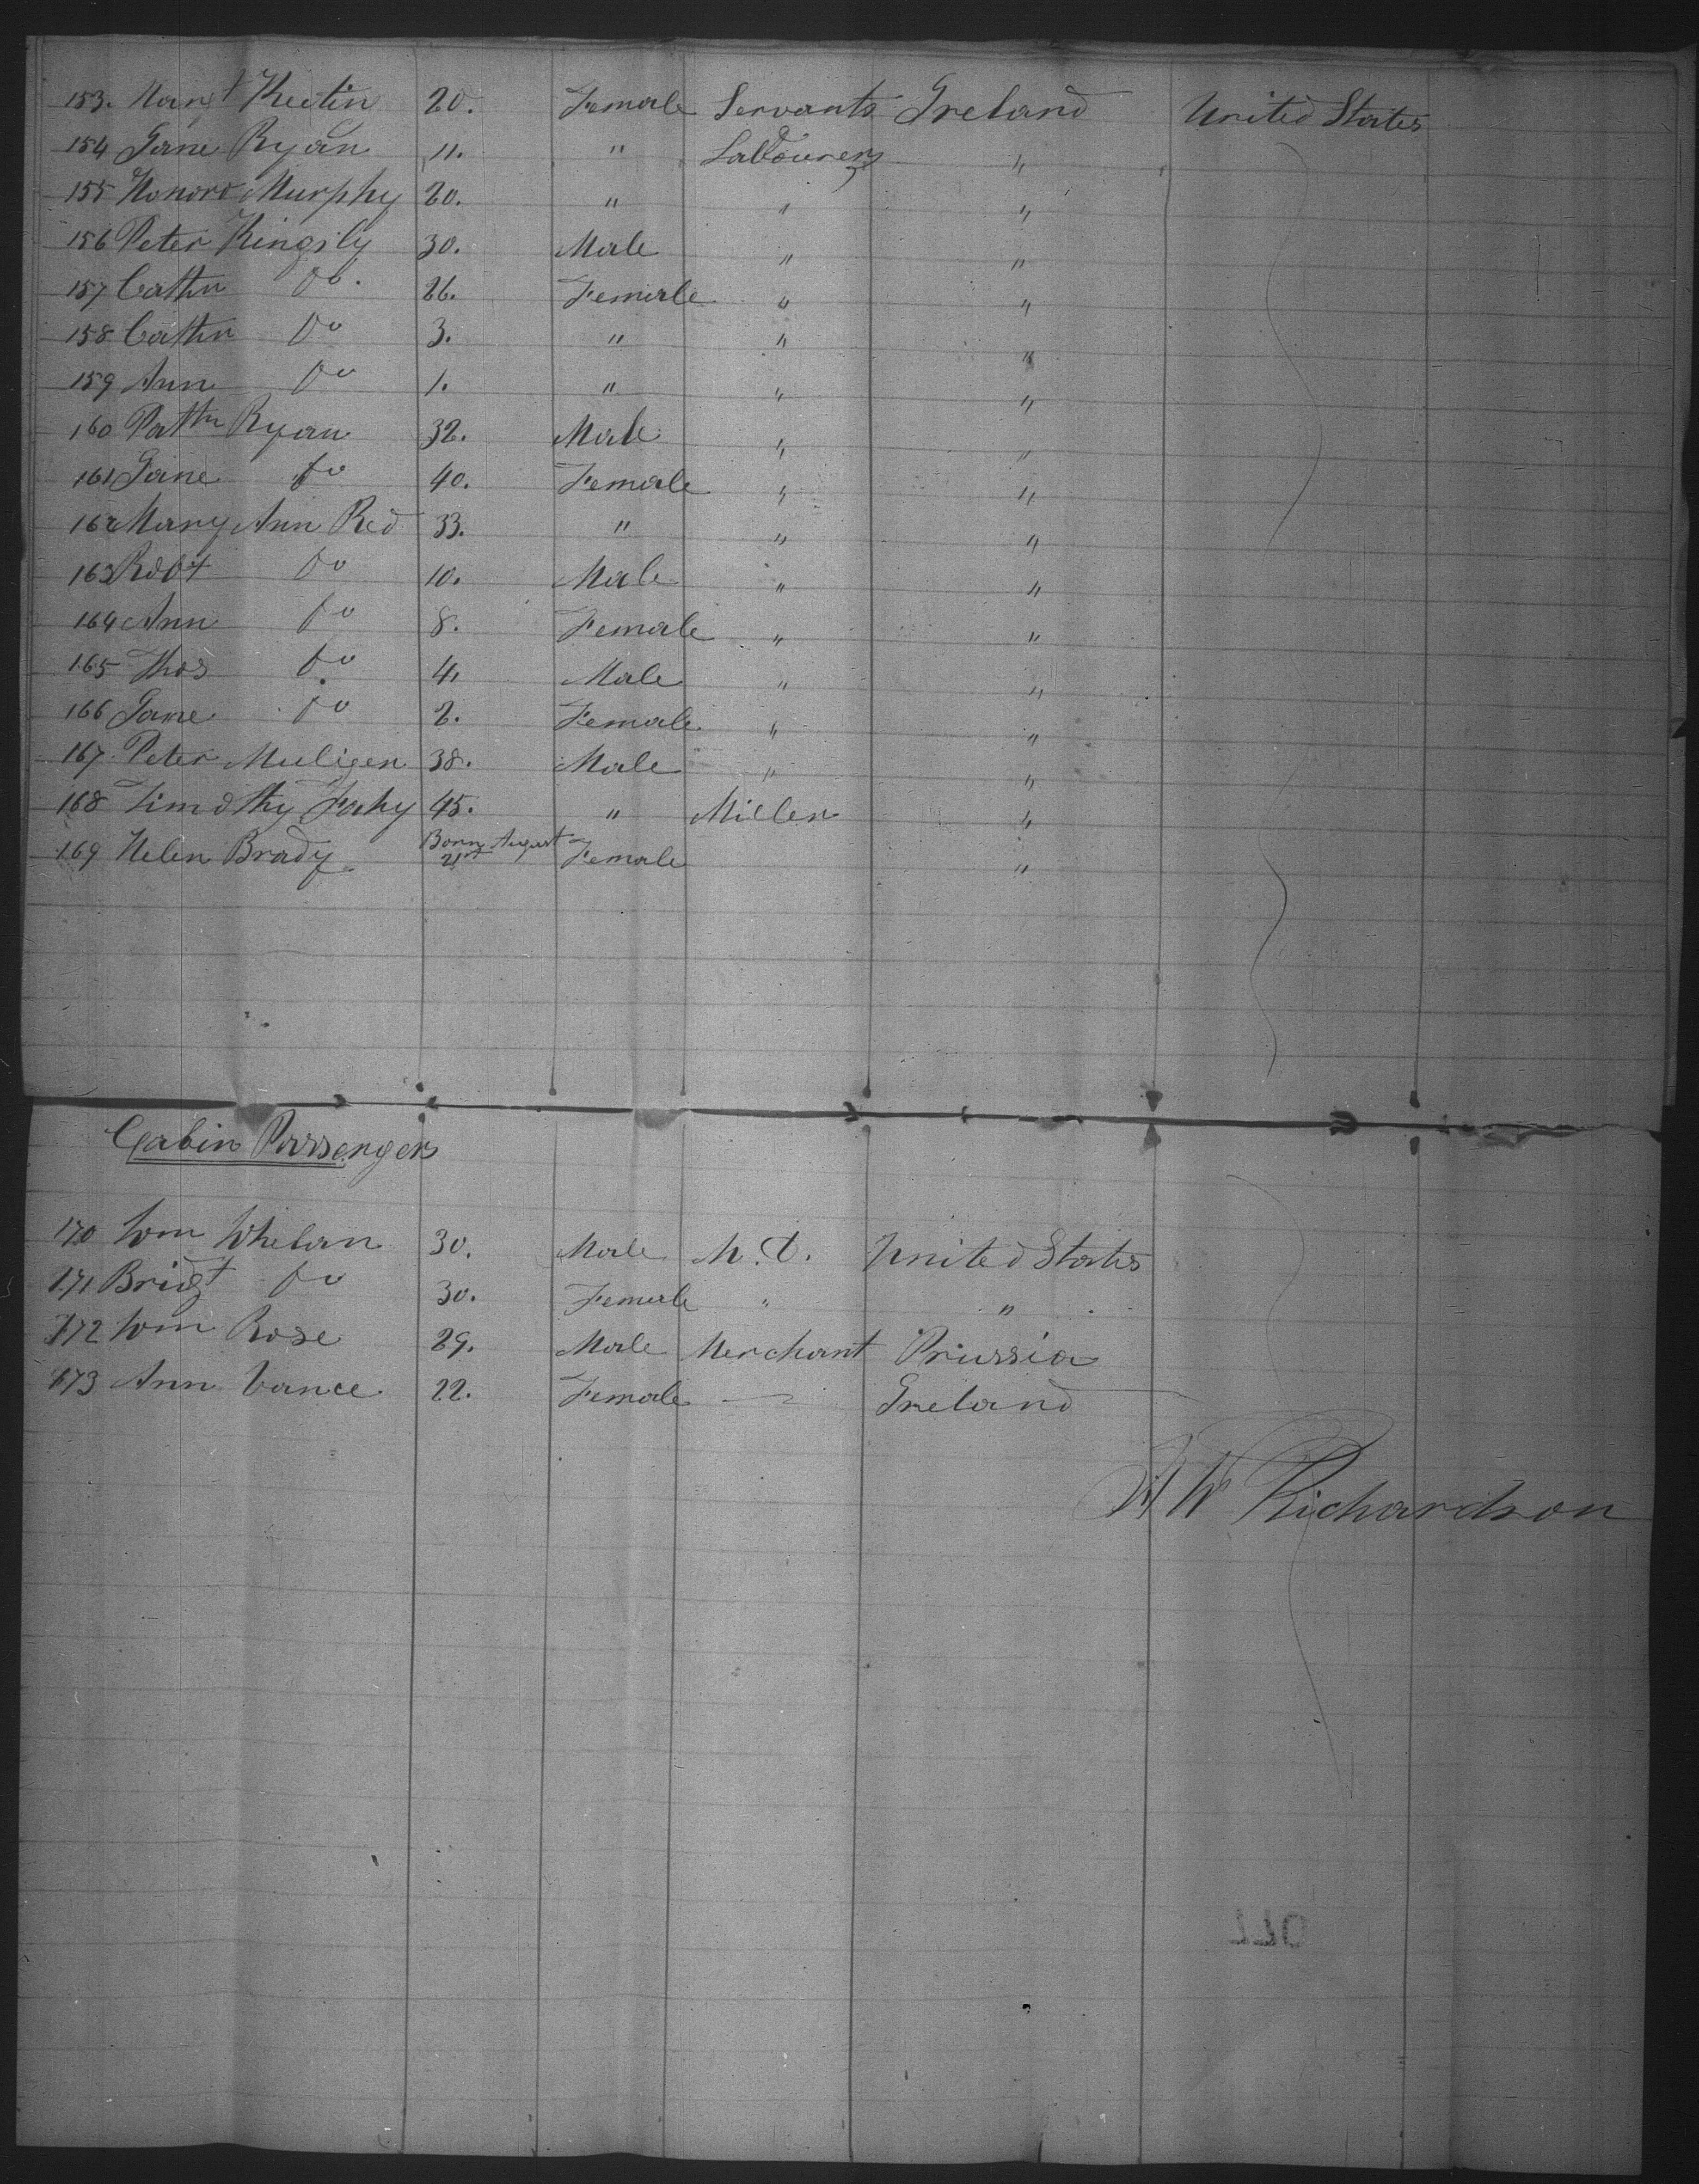 153. Margt Keetin 20. Female Servants Ireland United States
154 Jane Ryan 11. " Labourers "
155 Honora Murphy 20. " " "
156 Peter Kingsly 30. Male " "
157 Cathn Do. 26. Female " "
158 Cathn Do 3. " " "
159 Ann Do 1. " " "
160 Pathn Ryan 32. Male " "
161 Jane Do 40. Female " "
162 Mary Ann Red 33. " " "
163 Robt Do 10. Male " "
164 Ann Do 8. Female " "
165 Thos Do 4. Male " "
166 Jane Do 2. Female " "
167 Peter Muligen 38. Male " "
168 Timothy Fahy 45. " Miller "
169 Helen Brady Born August 21st Female "
Cabin Passengers
170 Wm Whelan 30. Male M.D. United States
171 Bridgt Do 30. Female " "
172 Wm Rose 29. Male Merchant Prussia
173 Ann Vance 22. Female — Ireland
W Richardson